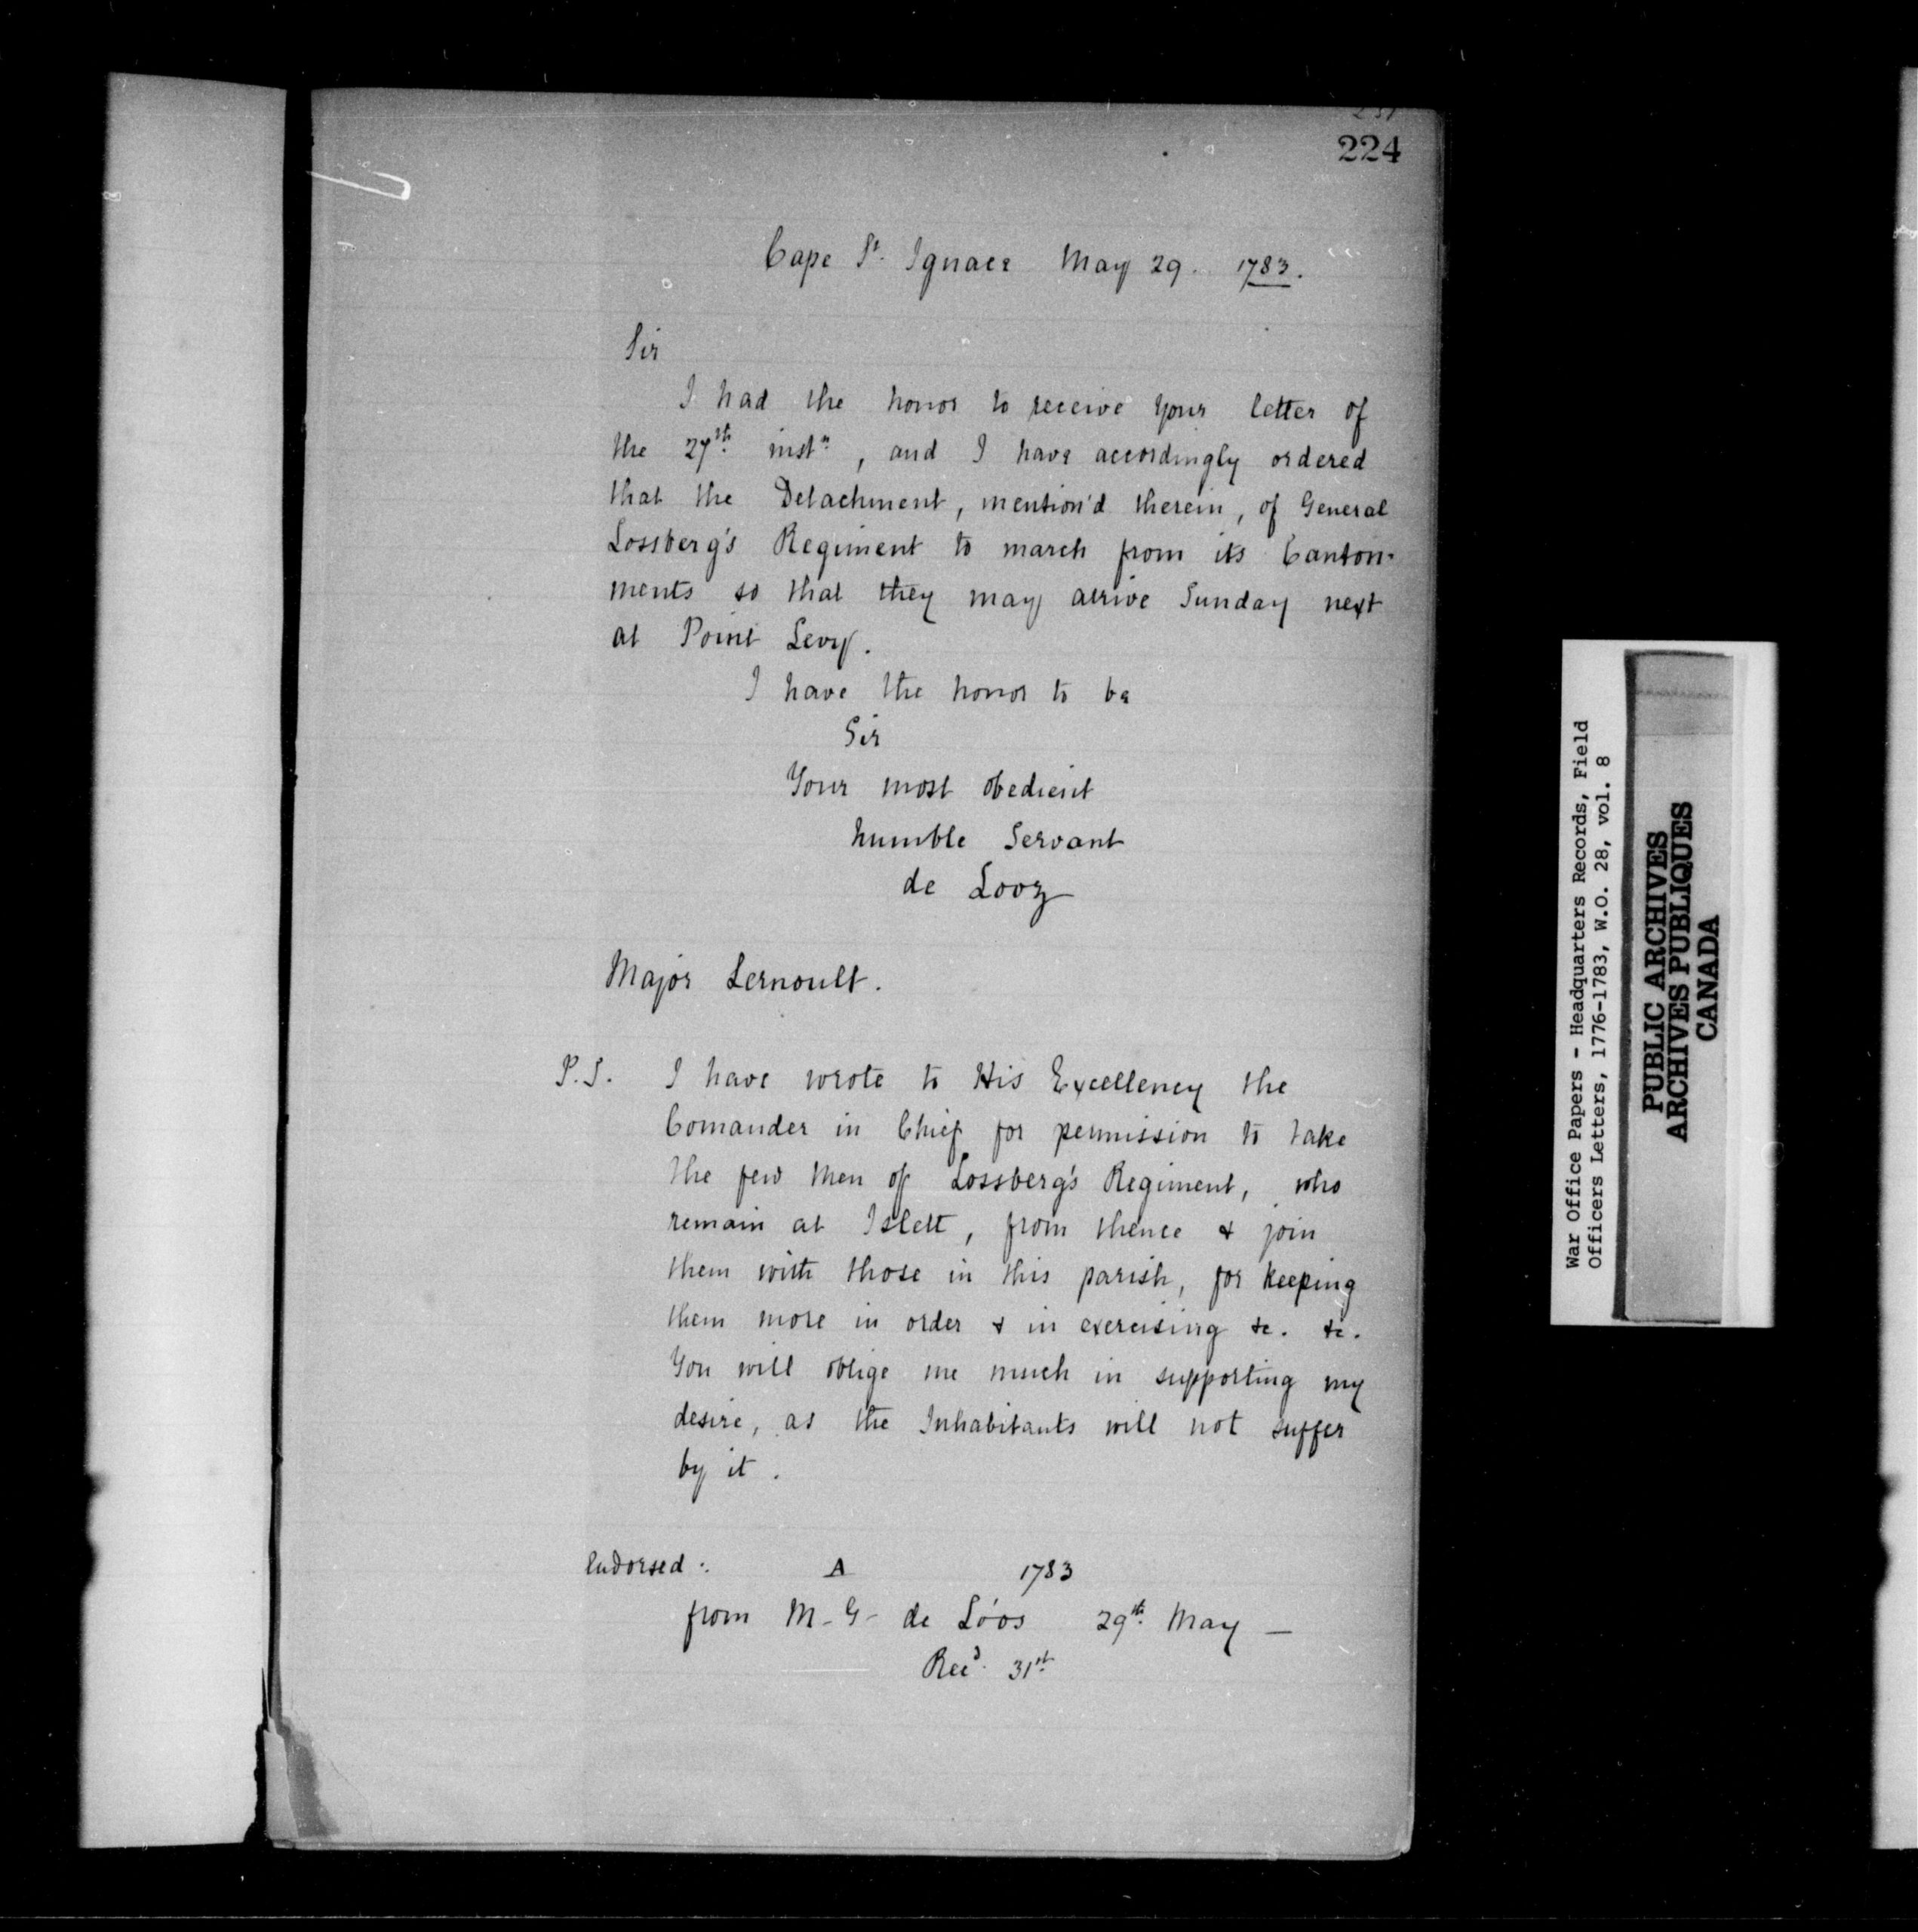 224
Cape St. Ignace May 29. 1783.
Sir
I had the honor to receive your letter of
the 27th. inst", and I have accordingly ordered
that the Detachment, mention'd therein, of General
Lossberg's Regiment to march from its Canton-
ments so that they may arrive Sunday next
at Point Levy.
I have the honor to be
Sir
Your most obedient
humble Servant
de Looz
Major Lernoult.
P.S. I have wrote to His Excellency the
Comander in Chief for permission to take
the few Men of Lossberg's Regiment, who
remain at Islett, from thence & join
them with those in this parish, for keeping
them more in order & in exercising &c. &c.
You will oblige me much in supporting my
desire, as the Inhabitants will not suffer
by it.
Endorsed: A 1783
from M-G- de Lóos 29th. May —
Recd. 31st.
War Office Papers - Headquarters Records, Field
Officers Letters, 1776-1783, W.O. 28, vol. 8
PUBLIC ARCHIVES
ARCHIVES PUBLIQUES
CANADA